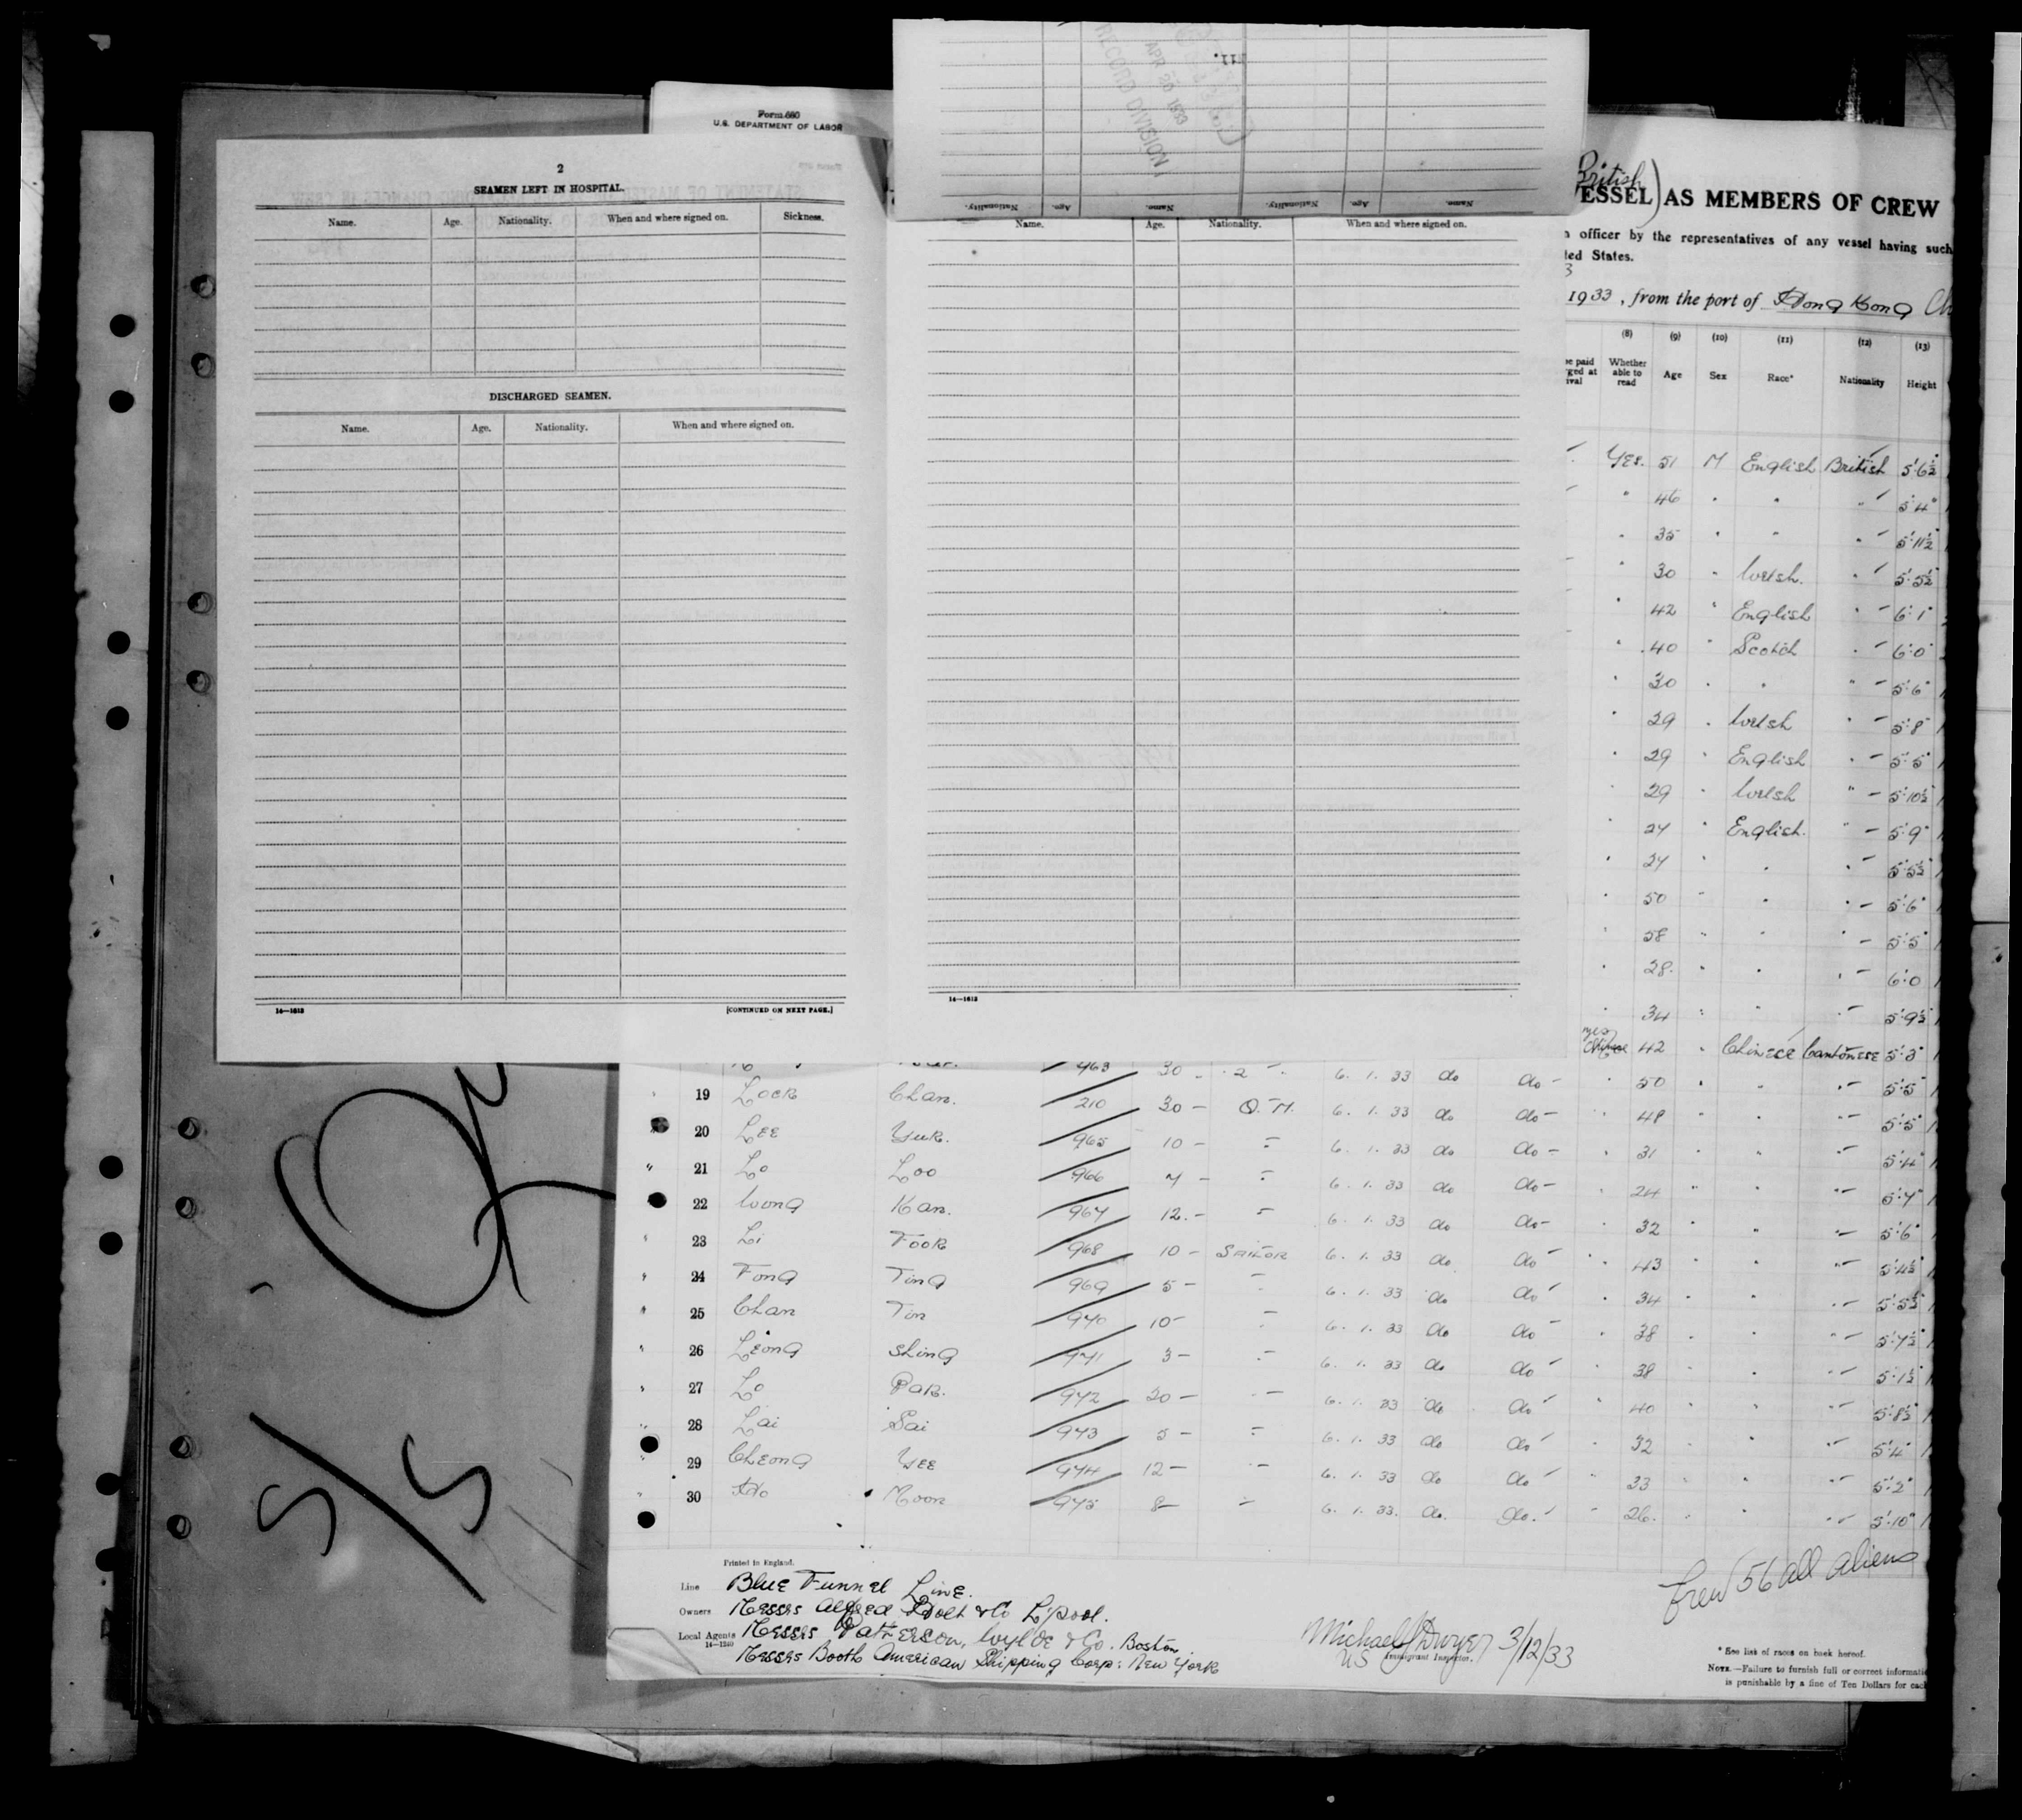 Form 680
U.S. DEPARTMENT OF LABOR
2
SEAMEN LEFT IN HOSPITAL.
Name. Age. Nationality. When and where signed on. Sickness.
DISCHARGED SEAMEN.
Name. Age. Nationality. When and where signed on.
14—1613
[CONTINUED ON NEXT PAGE.]
APR 20 1933
RECORD DIVISION
Name. Age. Nationality. Name. Age. Nationality.
Name. Age. Nationality. When and where signed on.
14—1613
British
VESSEL) AS MEMBERS OF CREW
officer by the representatives of any vessel having such
ted States.
1933, from the port of Hong Kong
(8) (9) (10) (11) (12) (13)
Whether able to read Age Sex Race* Nationality Height
Yes. 51 M English British 5'6½"
" 46 " " " 5'4"
" 35 " " " 5'11½"
" 30 " Welsh. " 5'5½"
" 42 " English " 6'1"
" 40 " Scotch " 6'0"
" 30 " " " 5'6"
" 29 " Welsh " 5'8"
" 29 " English " 5'5"
" 29 " Welsh " 5'10½"
" 24 " English. " 5'9"
" 24 " " " 5'5½"
" 50 " " " 5'6"
" 58 " " " 5'5"
" 28. " " " 6'0
" 34 " " " 5'9½"
yes Chinese 42 " Chinese Cantonese 5'3"
963 30 - 2 6. 1. 33 do do - " 50 " " " 5'5"
" 19 Lock Chan. 210 30 - Q.M. 6. 1. 33 do do - " 48 " " " 5'5"
" 20 Lee Yuk. 965 10 - " 6. 1. 33 do do - " 31 " " " 5'4"
" 21 Lo Loo 966 7 - " 6. 1. 33 do do - " 24 " " " 5'7"
" 22 Wong Kan. 967 12. - " 6. 1. 33 do do - " 32 " " " 5'6"
" 23 Li Fook 968 10 - Sailor 6. 1. 33 do do " 43 " " " 5'4½"
" 24 Fong Ting 969 5 - " 6. 1. 33 do do " 34 " " " 5'5½"
" 25 Chan Tin 970 10 - " 6. 1. 33 do do " 38 " " " 5'7½"
" 26 Leong Shing 971 3 - " 6. 1. 33 do do " 38 " " " 5'1½"
" 27 Lo Pak. 972 20 - " 6. 1. 33 do do " 40 " " " 5'8½"
" 28 Lai Sai 973 5 - " 6. 1. 33 do do " 32 " " " 5'4"
" 29 Cheong Yee 974 12 - " 6. 1. 33 do do " 33 " " " 5'2"
" 30 Ho Moon 975 8 - " 6. 1. 33. do. do. " 26. " " " 5'10"
Printed in England.
Line Blue Funnel Line.
Owners Messrs Alfred Holt & Co L'pool.
Local Agents Messrs Patterson, Wylde & Co. Boston
14—1240
Messrs Booth American Shipping Corp: New York
Michael J Dwyer 3/12/33
US Immigrant Inspector.
Crew 56 all aliens
* See list of races on back hereof.
NOTE.—Failure to furnish full or correct informati
is punishable by a fine of Ten Dollars for each
S/S